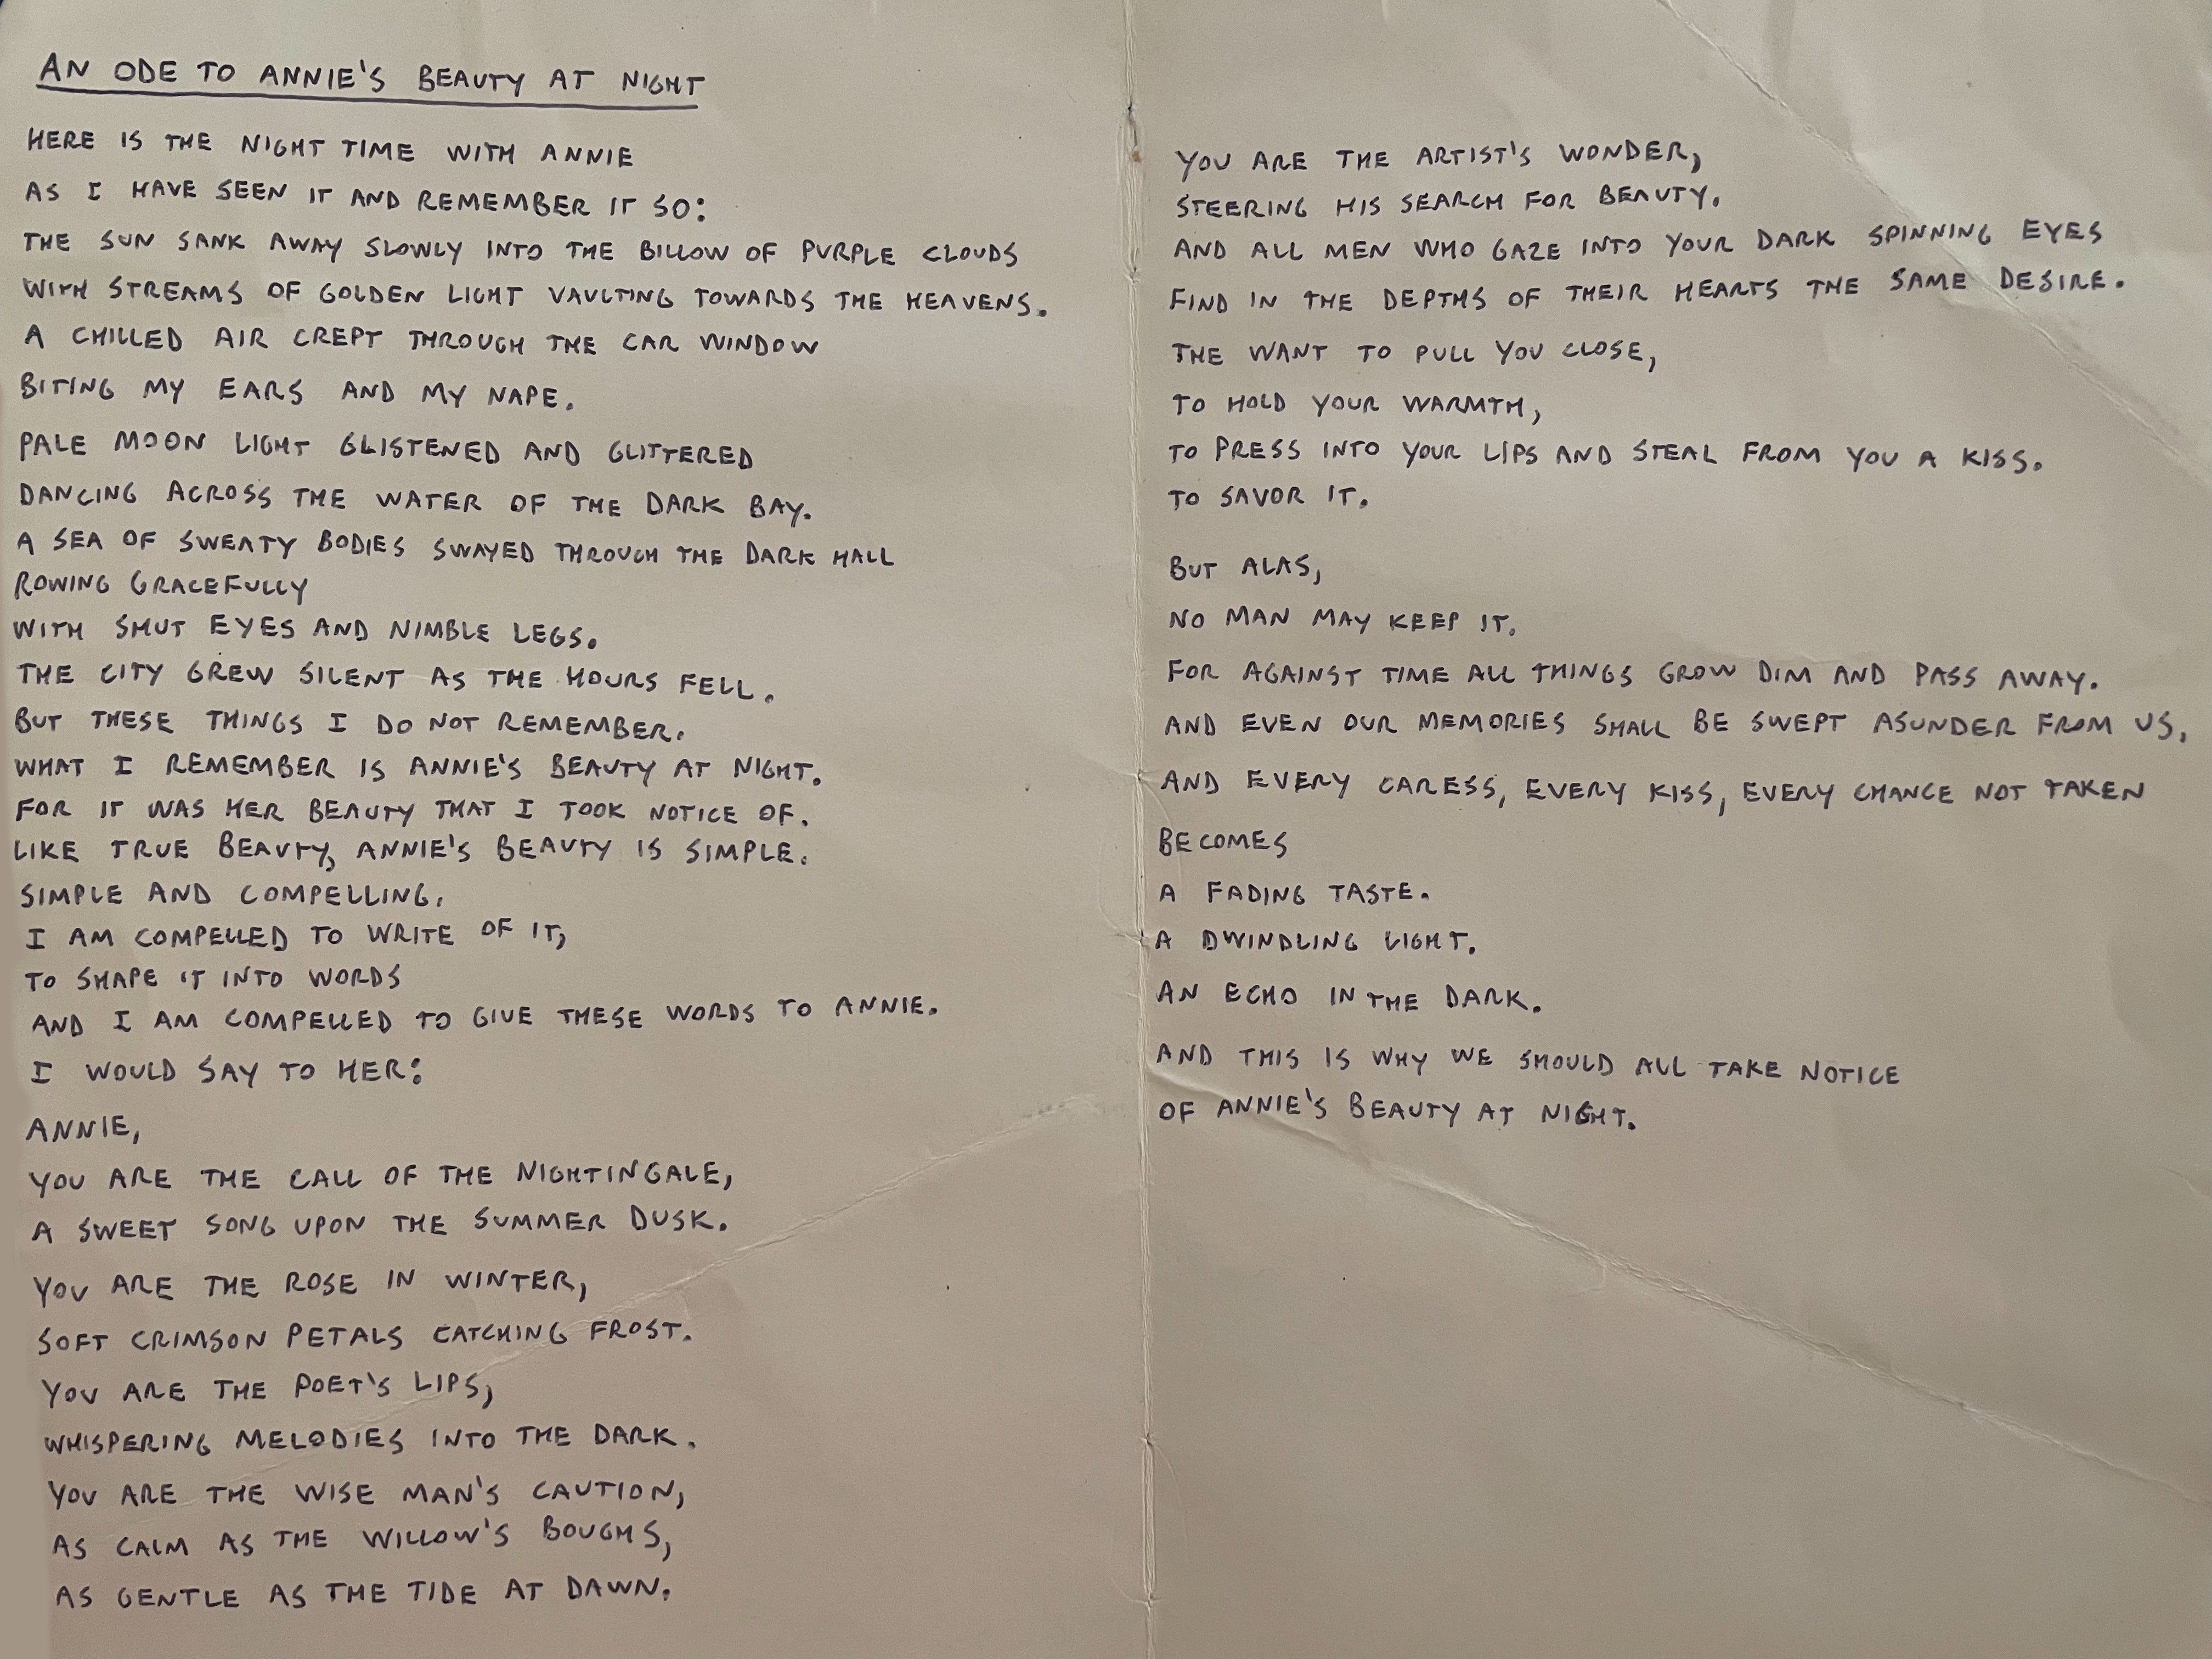 AN ODE TO ANNIE'S BEAUTY AT NIGHT
HERE IS THE NIGHT TIME WITH ANNIE
AS I HAVE SEEN IT AND REMEMBER IT SO:
THE SUN SANK AWAY SLOWLY INTO THE BILLOW OF PURPLE CLOUDS
WITH STREAMS OF GOLDEN LIGHT VAULTING TOWARDS THE HEAVENS.
A CHILLED AIR CREPT THROUGH THE CAR WINDOW
BITING MY EARS AND MY NAPE.
PALE MOON LIGHT GLISTENED AND GLITTERED
DANCING ACROSS THE WATER OF THE DARK BAY.
A SEA OF SWEATY BODIES SWAYED THROUGH THE DARK HALL
ROWING GRACEFULLY
WITH SHUT EYES AND NIMBLE LEGS.
THE CITY GREW SILENT AS THE HOURS FELL.
BUT THESE THINGS I DO NOT REMEMBER.
WHAT I REMEMBER IS ANNIE'S BEAUTY AT NIGHT.
FOR IT WAS HER BEAUTY THAT I TOOK NOTICE OF.
LIKE TRUE BEAUTY, ANNIE'S BEAUTY IS SIMPLE.
SIMPLE AND COMPELLING.
I AM COMPELLED TO WRITE OF IT,
TO SHAPE IT INTO WORDS
AND I AM COMPELLED TO GIVE THESE WORDS TO ANNIE.
I WOULD SAY TO HER:
ANNIE,
YOU ARE THE CALL OF THE NIGHTINGALE,
A SWEET SONG UPON THE SUMMER DUSK.
YOU ARE THE ROSE IN WINTER,
SOFT CRIMSON PETALS CATCHING FROST.
YOU ARE THE POET'S LIPS,
WHISPERING MELODIES INTO THE DARK.
YOU ARE THE WISE MAN'S CAUTION,
AS CALM AS THE WILLOW'S BOUGHS,
AS GENTLE AS THE TIDE AT DAWN.
YOU ARE THE ARTIST'S WONDER,
STEERING HIS SEARCH FOR BEAUTY.
AND ALL MEN WHO GAZE INTO YOUR DARK SPINNING EYES
FIND IN THE DEPTHS OF THEIR HEARTS THE SAME DESIRE.
THE WANT TO PULL YOU CLOSE,
TO HOLD YOUR WARMTH,
TO PRESS INTO YOUR LIPS AND STEAL FROM YOU A KISS.
TO SAVOR IT.
BUT ALAS,
NO MAN MAY KEEP IT.
FOR AGAINST TIME ALL THINGS GROW DIM AND PASS AWAY.
AND EVEN OUR MEMORIES SHALL BE SWEPT ASUNDER FROM US,
AND EVERY CARESS, EVERY KISS, EVERY CHANCE NOT TAKEN
BECOMES
A FADING TASTE.
A DWINDLING LIGHT.
AN ECHO IN THE DARK.
AND THIS IS WHY WE SHOULD ALL TAKE NOTICE
OF ANNIE'S BEAUTY AT NIGHT.